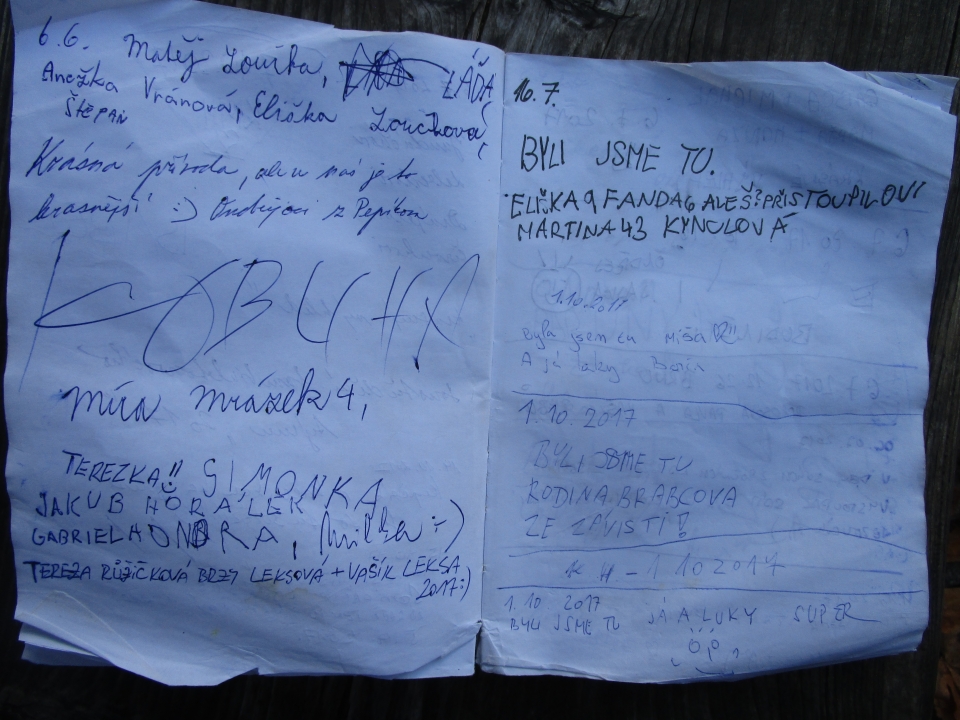 6.6. Matěj Loučka, LÁĎA
Anežka Vránová, Eliška Loučková,
ŠTĚPÁN
Krásná příroda, ale u nás je to
krasnější :-) Ondřejáci z Pepíkem
KOBUHA
Míra Mrázek 4,
TEREZKA!! SIMONKA
JAKUB HORÁLEK
GABRIELA ONDRA, Milka :-)
TEREZA RŮŽIČKOVÁ BRZY LEKSOVÁ + VAŠÍK LEKSA
2017:)
16.7.
BYLI JSME TU.
ELIŠKA 9 FANDA 6 ALEŠ PŘISTOUPILOVI
MARTINA 43 KYNCLOVÁ
1.10.2017
Byla jsem tu Míša !!
A já taky
1.10.2017
BYLI JSME TU
RODINA BRABCOVA
ZE ZÁVISTI!
K H - 1 10 2017
1.10 2017
BYLI JSME TU JÁ A LUKY SUPER